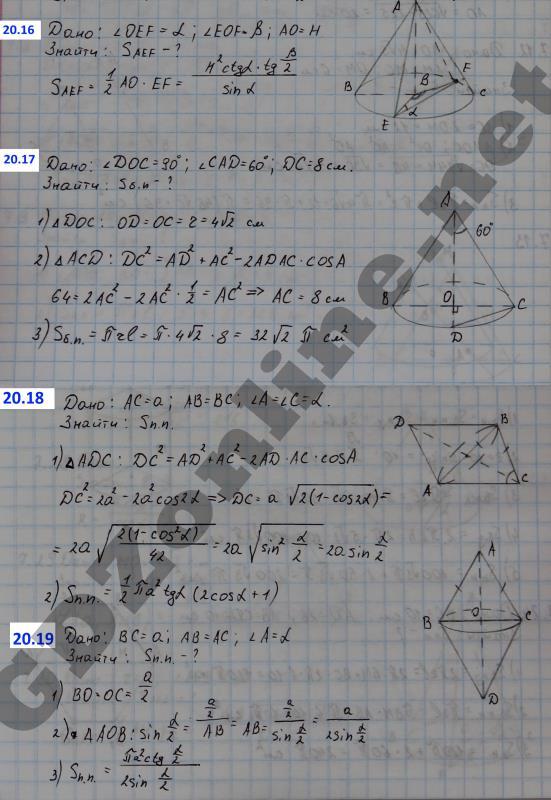 20.16 Дано: ∠OEF = α; ∠EOF = β; AO = H
Знайти: S_AEF - ?
S_AEF = 1/2 AO · EF = H² ctgα · tg β/2 / sin α
A
B
C
E
F
β
α
20.17 Дано: ∠DOC = 90°; ∠CAD = 60°; DC = 8 см.
Знайти: Sб.п - ?
1) △DOC: OD = OC = r = 4√2 см
2) △ACD: DC² = AD² + AC² - 2AD AC · cosA
64 = 2AC² - 2AC² · 1/2 = AC² => AC = 8 см
3) Sб.п. = πrl = π · 4√2 · 8 = 32√2 π см²
A
60°
B
O
C
D
20.18 Дано: AC = a; AB = BC; ∠A = ∠C = α.
Знайти: Sп.п.
1) △ADC: DC² = AD² + AC² - 2AD · AC · cosA
DC² = 2a² - 2a² cos2α => DC = a √2(1-cos2α) =
= 2a √2(1-cos²α)/42 = 2a √sin² α/2 = 2a sin α/2
2) Sп.п. = 1/2 πa² tgα (2cosα + 1)
D
B
A
C
20.19 Дано: BC = a; AB = AC; ∠A = α
Знайти: Sп.п. - ?
1) BO = OC = a/2
2) △AOB: sin α/2 = a/2 / AB = AB = a/2 / sin α/2 = a / 2sin α/2
3) Sп.п. = πa² ctg α/2 / 2sin α/2
A
B
O
C
D
GDZonline.net